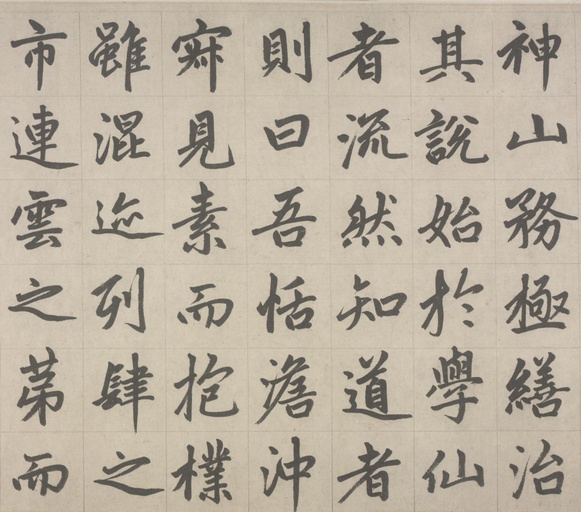 神山務極繕治
其說始於學仙
者流然知道者
則曰吾恬澹沖
寂見素而抱樸
雖混迹列肆之
市連雲之第而